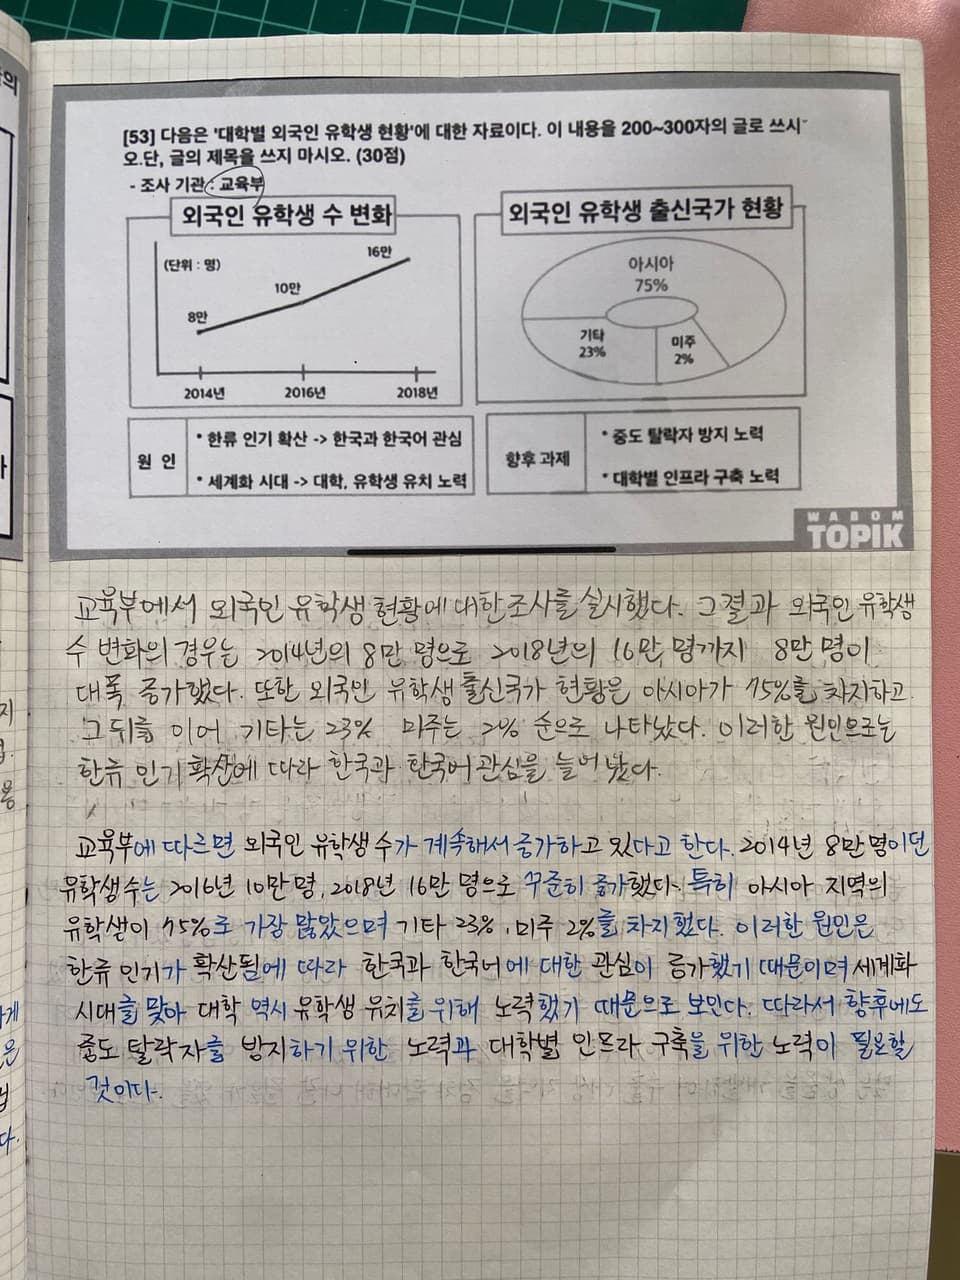 [53] 다음은 '대학별 외국인 유학생 현황'에 대한 자료이다. 이 내용을 200~300자의 글로 쓰시
오.단, 글의 제목을 쓰지 마시오. (30점)
- 조사 기관 : 교육부
외국인 유학생 수 변화
(단위 : 명)
8만
10만
16만
2014년 2016년 2018년
외국인 유학생 출신국가 현황
아시아
75%
기타
23%
미주
2%
원 인
• 한류 인기 확산 -> 한국과 한국어 관심
• 세계화 시대 -> 대학, 유학생 유치 노력
향후 과제
• 중도 탈락자 방지 노력
• 대학별 인프라 구축 노력
WABOM
TOPIK
교육부에서 외국인 유학생 현황에 대한 조사를 실시했다. 그 결과 외국인 유학생
수 변화의 경우는 2014년의 8만 명으로 2018년의 16만 명까지 8만 명이
대폭 증가했다. 또한 외국인 유학생 출신국가 현황은 아시아가 75%를 차지하고
그 뒤를 이어 기타는 23% 미주는 2% 순으로 나타났다. 이러한 원인으로는
한류 인기 확산에 따라 한국과 한국어 관심을 늘어났다.
교육부에 따르면 외국인 유학생 수가 계속해서 증가하고 있다고 한다. 2014년 8만 명이던
유학생 수는 2016년 10만 명, 2018년 16만 명으로 꾸준히 증가했다. 특히 아시아 지역의
유학생이 75%로 가장 많았으며 기타 23%, 미주 2%를 차지했다. 이러한 원인은
한류 인기가 확산됨에 따라 한국과 한국어에 대한 관심이 증가했기 때문이며 세계화
시대를 맞아 대학 역시 유학생 유치를 위해 노력했기 때문으로 보인다. 따라서 향후에도
중도 탈락자를 방지하기 위한 노력과 대학별 인프라 구축을 위한 노력이 필요할
것이다.